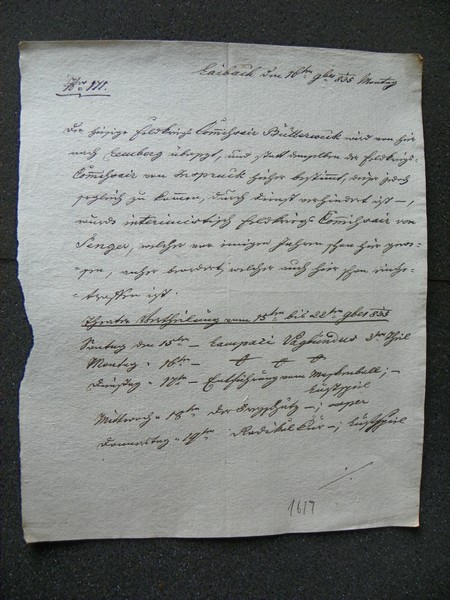 Laibach den 16ten 9ber 835 Montag
Nro 171.
Der hiesige Feldkriegs Commissair Butterweck wird von hier
nach Lemberg übersezt, und statt demselben der Feldkriegs
Commissair von Inspruck hieher bestimmt, diese jedoch
sogleich zu kommen, durch Dienst verhindert ist –,
wurde interimistisch Feldkriegs Commissair von
Senger, welcher vor einigen Jahren schon hier gewe-
sen, anher beordert, welcher auch hier schon einge-
troffen ist.
Theater Vertheilung vom 15ten bis 22ten 9ber 835
Sontag den 15ten – 3ter Theil
Montag " 16ten – + + +
Dienstag " 17ten – Entführung vom Maskenball; –
Lustspiel
Mittwoch " 18ten Der Freyschütz –; oper
Donnerstag " 19ten Radikal Kur –; Lustspiel
1617